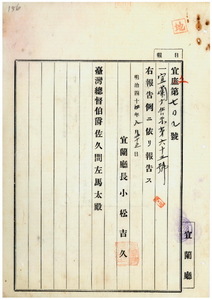 宜庶第七〇九號
一宜蘭廳告示第六十五號
右報告例ニ依リ報告ス
明治四十四年
宜蘭廳長小松吉久
臺灣總督伯爵佐久間左馬太殿
宜蘭廳